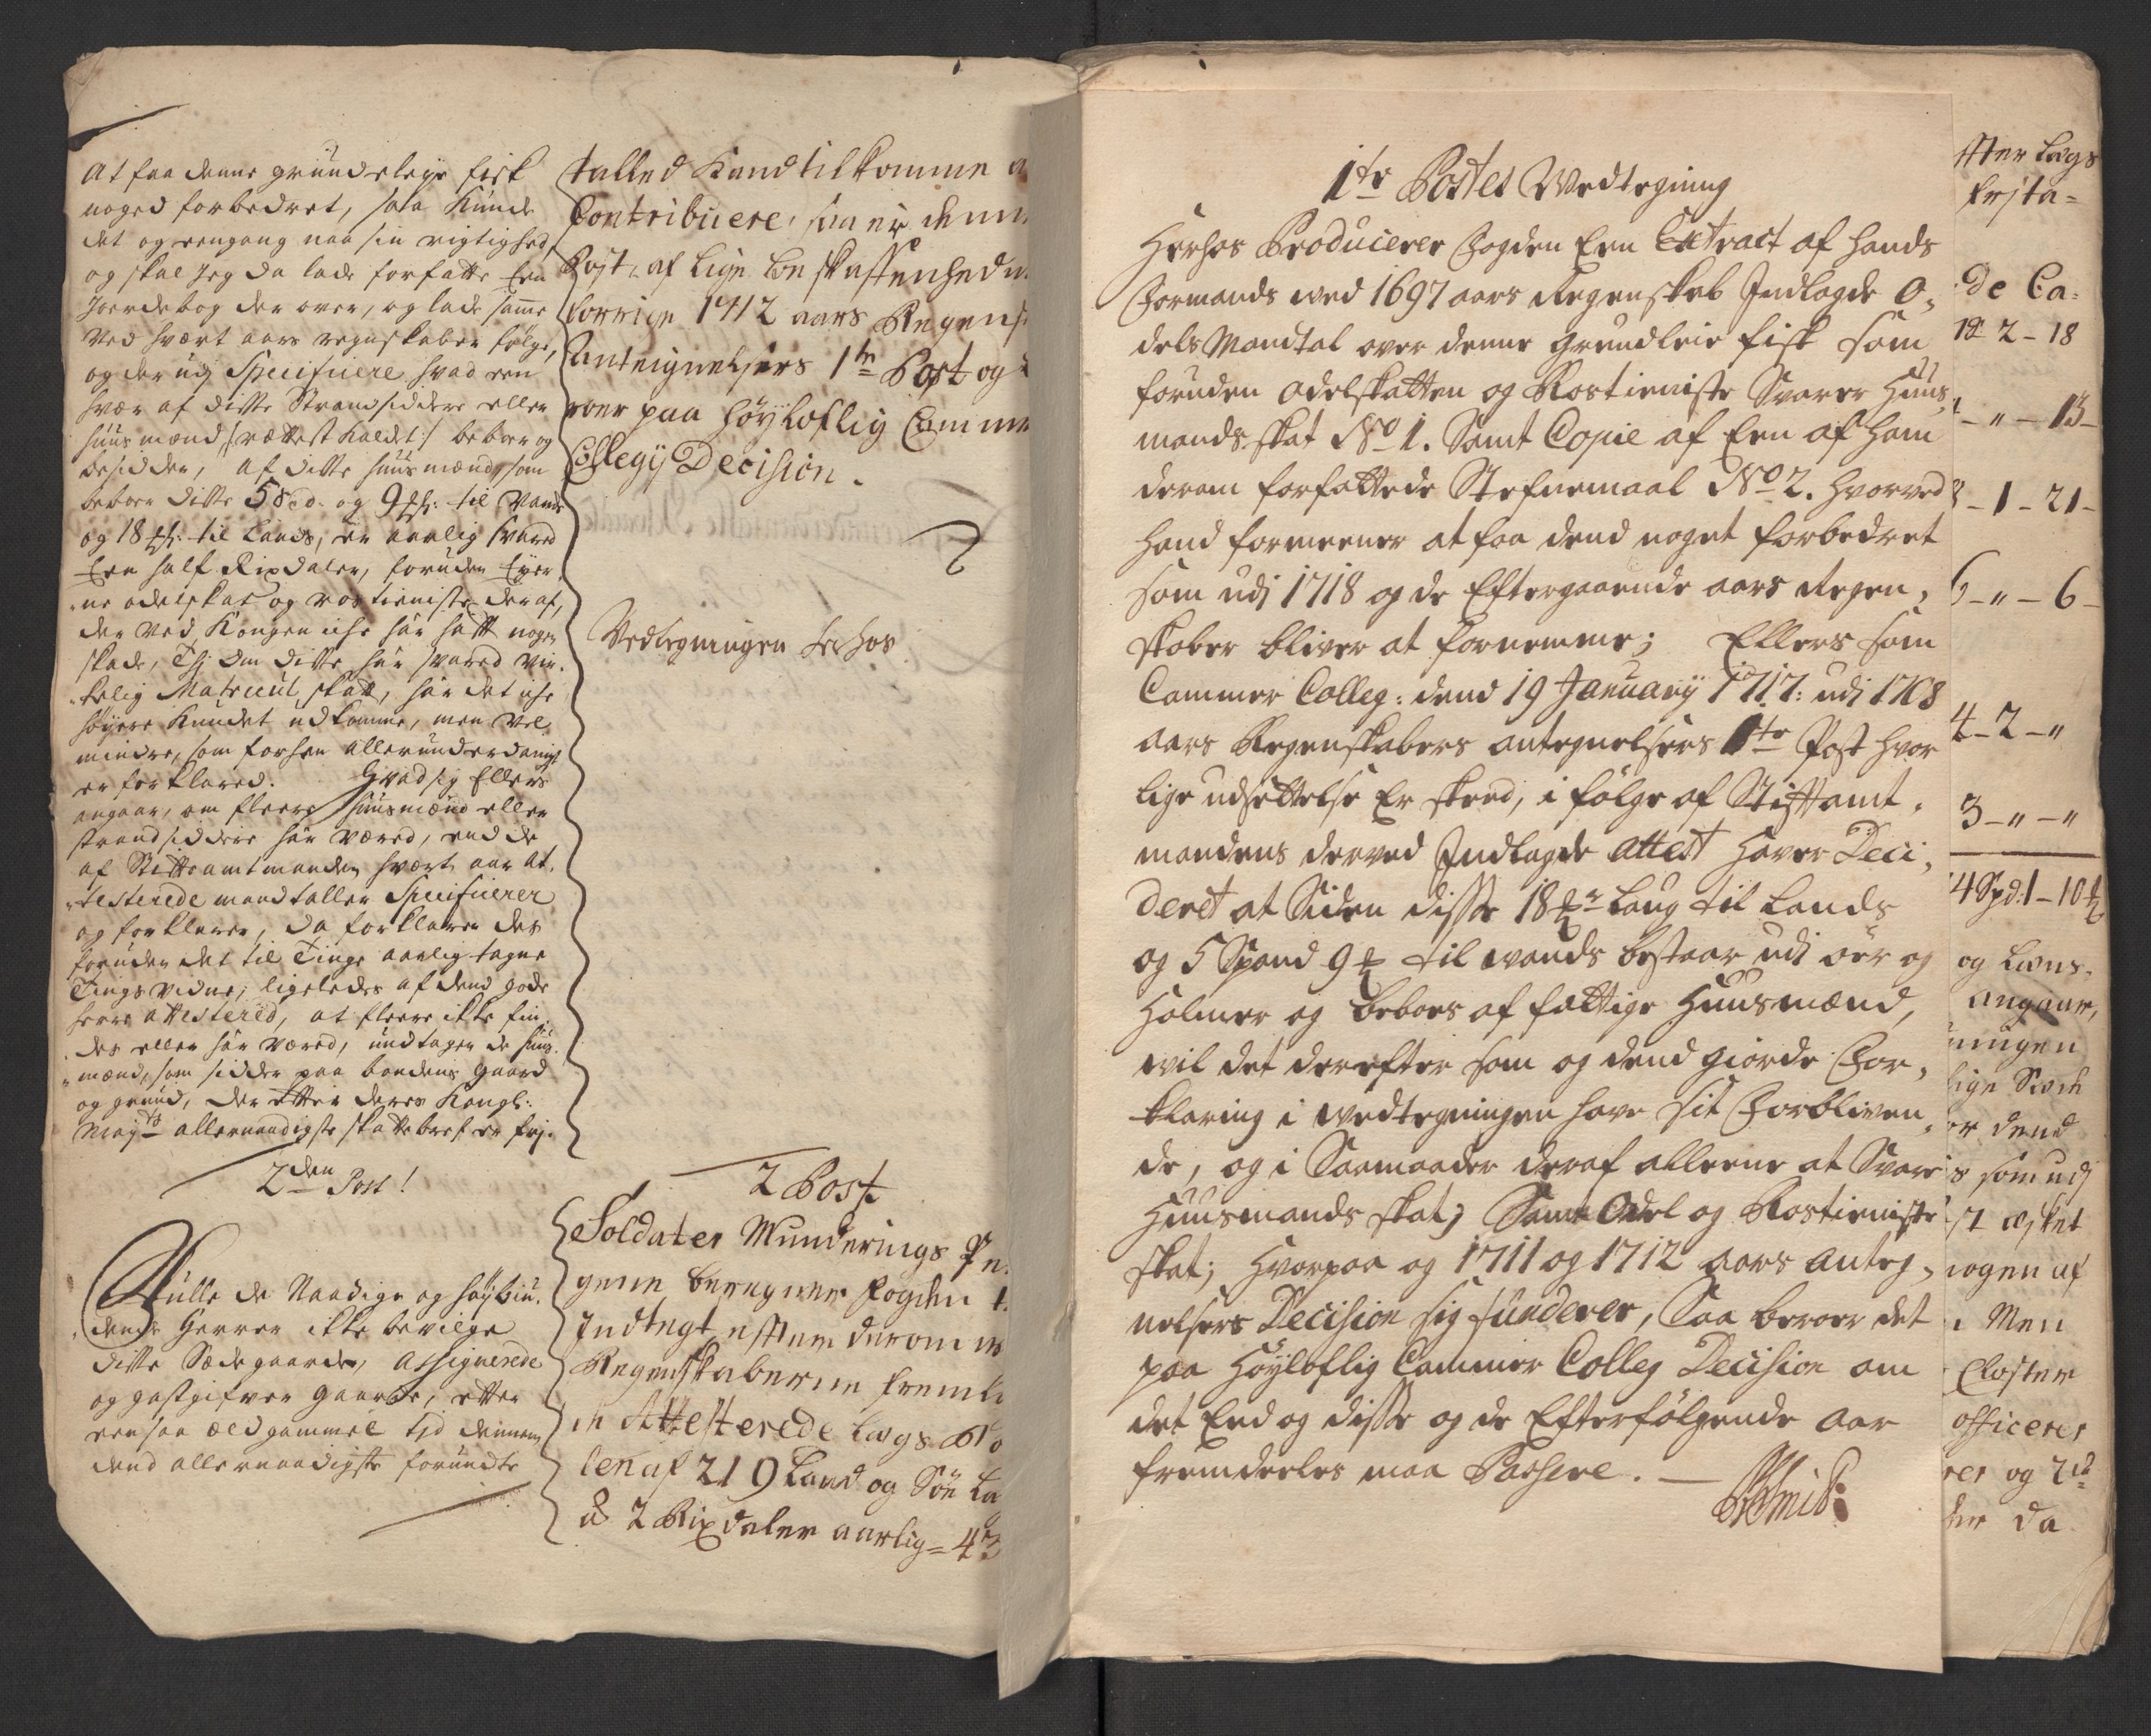 At faa denne grundeleye fisk
noged forbedret, saa kunde
det og eengang naa sin rigtighed,
og skal jeg da lade forfatte Een
Jordebog der over, og lade samme
ved hvert aars regnskaber følge,
og der udj Specificere hvad een
hver af ditte Strandsiddere eller
huusmænd /: rættest kaldet :/ beboer og
besidder, af ditte huusmænd som
beboer ditte 5 Spd. og 9 til Vands
og 18 til Lands, er aarlig svared
Een half Rixdaler, foruden Eyer-
ne odelskat og rostieniste deraf,
der ved Kongen iche har hafft nogen
skade, Thj om ditte har svared vir-
kelig Matricul skatt, har det iche
høyere kundet udkomme, men vel
mindre, som forhen allerunderdanigst
er forklared. Hvad sig Ellers
angaar, om fleere huusmænd eller
strandsiddere har været, end de
af Stiftsamtmanden hvert aar at-
testerede mandtaller Specificerer
og forklarer, da forklarer det
foruden det til Tinge aarlig tagne
Tingsvidne, ligeledes af dend gode
herre attestered, at fleere ikke fin-
des eller har været, undtagen de huus-
mænd, som sidder paa bondens gaard
og grund, der etter deres Kongl:
Mayts allernaadigste skattebref er frj.
2den Post!
Skulle de Naadige og høybiu-
dende Herrer ikke bevilge
ditte Sædegaarde, assignerede
og gastgifver gaarde, etter
een saa ældgammel tjd dennem
dend allernaadigste forundte
talled kand tilkomme
Contribuere, saa er denne
Post af lige beskaffenhed
forrige 1712 aars Regens
Anteignelsers 1te Post og
roer paa Høyloflig Camme
Collegij Decision.
Vedtegningen herhos
2 Post
Soldater Munderings Pe
gene beregner fogden
Indtegt efter derom
Regenskaberne freml
de Attesterede Legs
len af 219 Land og Søe Le
à 2 Rixdaler aarlig = 43
1te Postes Wedtegning
Herhos Producerer Fogden Een Extract af hands
Formands wed 1697 aars Regenskab Indlagde O-
dels Mandtal over denne grundleie fisk som
foruden odelskatten og Rostieniste Svarer Huus-
mands skat No 1. Samt Copie af Een af ham
derom forfattede Stefnemaal No 2. hvorved
hand formeener at faa dend noget forbedret
som udj 1718 og de Eftergaaende aars Regen-
skaber bliver at fornemme; Ellers som
Cammer Colleg: dend 19 January 1717: udj 1708
aars Regenskabers antegnelsers 1te Post hvor
lige udsettelse Er skeed, i følge af Stiftamt-
mandens derved Indlagde attest haver Deci-
deret at Siden disse 18 Laug til Lands
og 5 Spand 9 til wands bestaar udi øer og
Holmer og beboes af fattige Huusmænd,
wil det derefter som og dend giorde For-
klaring i wedtegningen have sit Forbliven-
de, og i Saamaader deraf alleene at Svare
Huusmands skat; Samt Odel og Rostieniste
skat; Hvorpaa og 1711 og 1712 aars anteg-
nelsers Decision sig funderer, Saa beroer det
paa Høyloflig Cammer Colleg Decision om
det End og disse og de Efterfølgende Aar
fremdeeles maa Passere.
Schmidt
efter Legs
frjsta-
de Ca-
2 - 18
- " - 13 -
- 1 - 21 -
6 - " - 6 -
4 - 2 - "
3 - " - "
4 Spd. 1 - 10 1/2
og Lens-
Angaar,
ningen
lige
dend
som udj
nogen af
Men
Closter
officerer
og
da